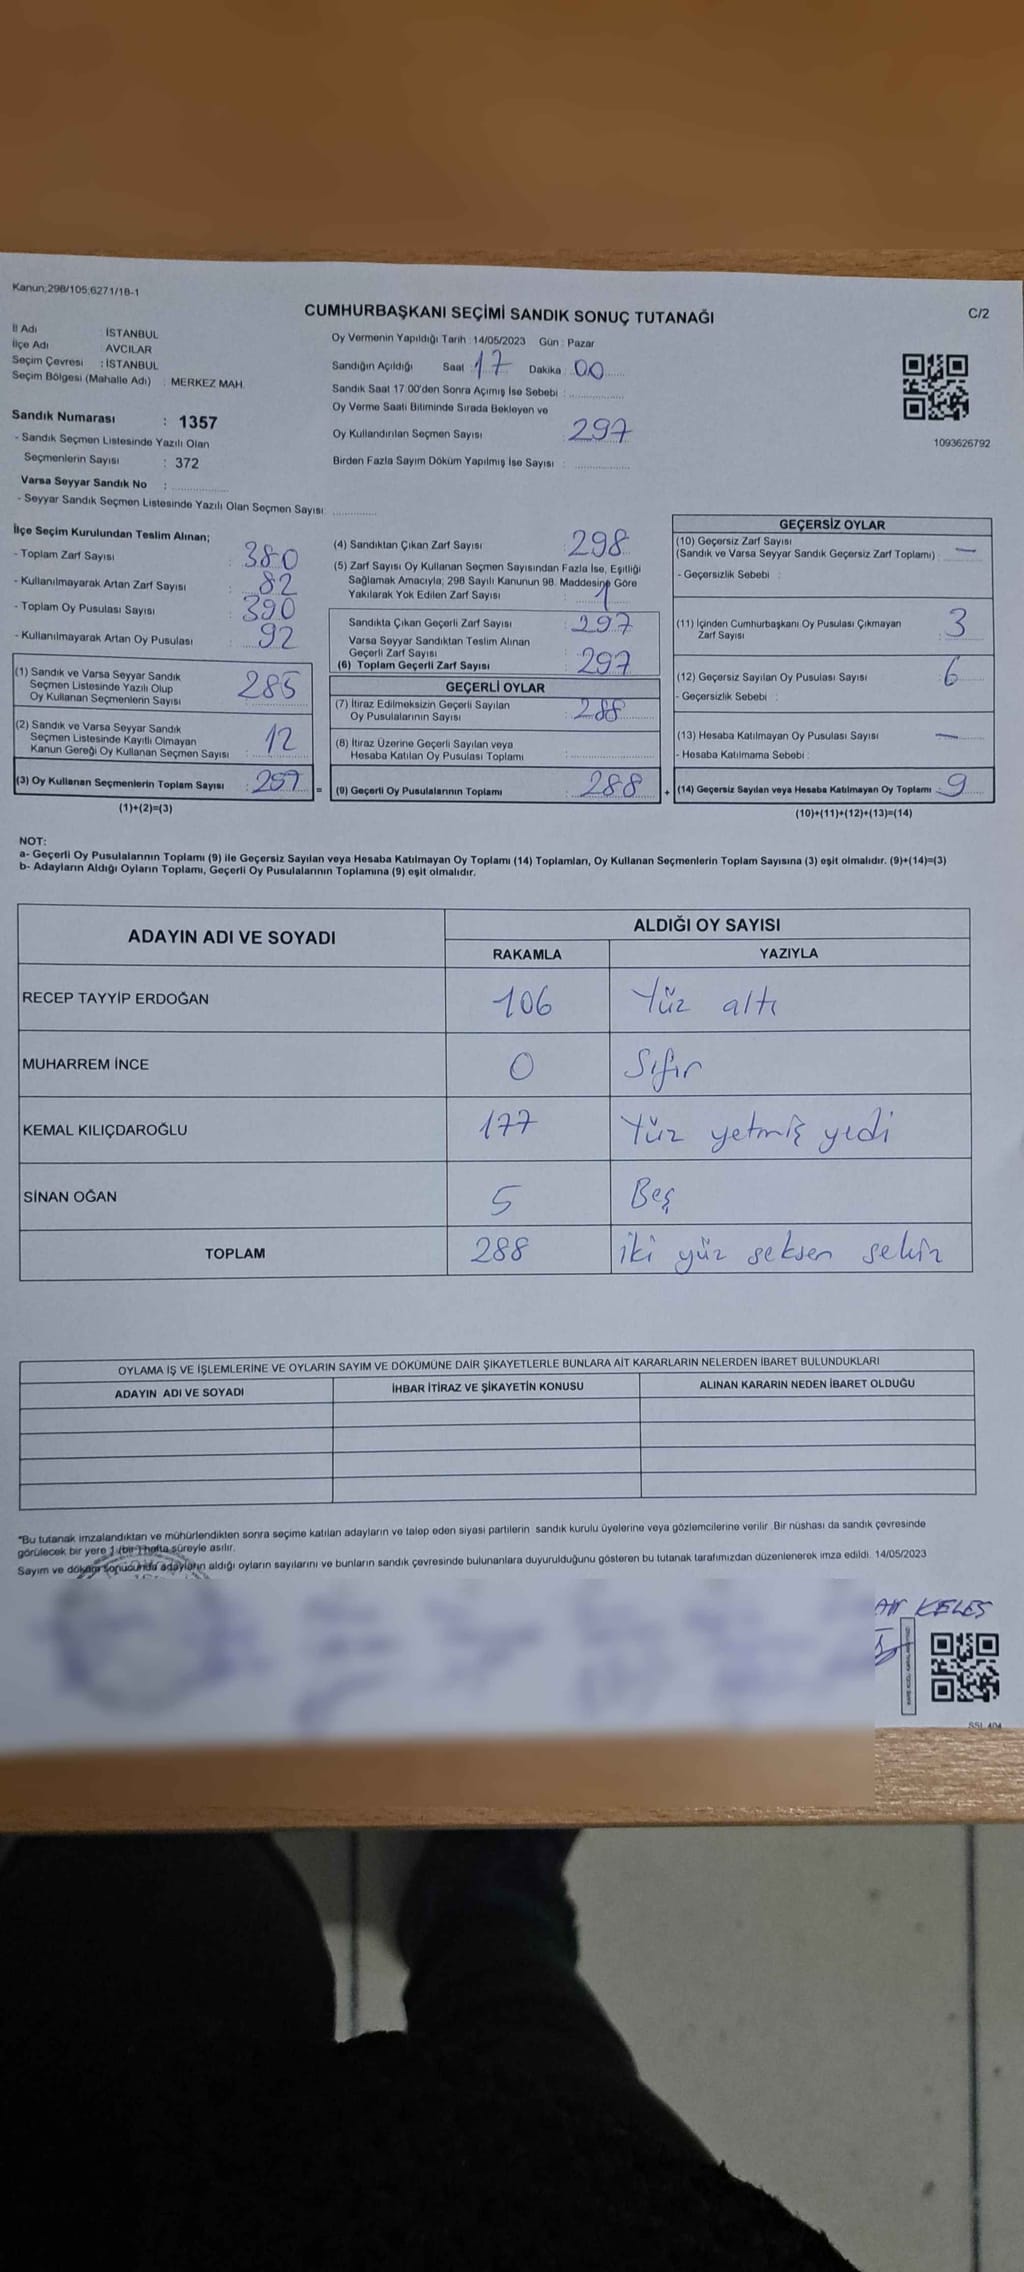 Kanun;298/105;6271/18-1
CUMHURBAŞKANI SEÇİMİ SANDIK SONUÇ TUTANAĞI
C/2
İl Adı : İSTANBUL
İlçe Adı : AVCILAR
Seçim Çevresi : İSTANBUL
Seçim Bölgesi (Mahalle Adı) : MERKEZ MAH.
Sandık Numarası : 1357
- Sandık Seçmen Listesinde Yazılı Olan
Seçmenlerin Sayısı : 372
Varsa Seyyar Sandık No :
- Seyyar Sandık Seçmen Listesinde Yazılı Olan Seçmen Sayısı:
Oy Vermenin Yapıldığı Tarih : 14/05/2023 Gün : Pazar
Sandığın Açıldığı Saat : 17 Dakika : 00
Sandık Saat 17:00'den Sonra Açımış İse Sebebi :
Oy Verme Saati Bitiminde Sırada Bekleyen ve
Oy Kullandırılan Seçmen Sayısı : 297
Birden Fazla Sayım Döküm Yapılmış İse Sayısı :
1093626792
İlçe Seçim Kurulundan Teslim Alınan;
- Toplam Zarf Sayısı : 380
- Kullanılmayarak Artan Zarf Sayısı : 82
- Toplam Oy Pusulası Sayısı : 390
- Kullanılmayarak Artan Oy Pusulası : 92
(1) Sandık ve Varsa Seyyar Sandık
Seçmen Listesinde Yazılı Olup
Oy Kullanan Seçmenlerin Sayısı : 285
(2) Sandık ve Varsa Seyyar Sandık
Seçmen Listesinde Kayıtlı Olmayan
Kanun Gereği Oy Kullanan Seçmen Sayısı : 12
(3) Oy Kullanan Seçmenlerin Toplam Sayısı : 297 =
(1)+(2)=(3)
(4) Sandıktan Çıkan Zarf Sayısı : 298
(5) Zarf Sayısı Oy Kullanan Seçmen Sayısından Fazla İse, Eşitliği
Sağlamak Amacıyla; 298 Sayılı Kanunun 98. Maddesine Göre
Yakılarak Yok Edilen Zarf Sayısı : 1
Sandıkta Çıkan Geçerli Zarf Sayısı : 297
Varsa Seyyar Sandıktan Teslim Alınan
Geçerli Zarf Sayısı
(6) Toplam Geçerli Zarf Sayısı : 297
GEÇERLİ OYLAR
(7) İtiraz Edilmeksizin Geçerli Sayılan
Oy Pusulalarının Sayısı : 288
(8) İtiraz Üzerine Geçerli Sayılan veya
Hesaba Katılan Oy Pusulası Toplamı :
(9) Geçerli Oy Pusulalarının Toplamı : 288 +
GEÇERSİZ OYLAR
(10) Geçersiz Zarf Sayısı
(Sandık ve Varsa Seyyar Sandık Geçersiz Zarf Toplamı) : —
- Geçersizlik Sebebi :
(11) İçinden Cumhurbaşkanı Oy Pusulası Çıkmayan
Zarf Sayısı : 3
(12) Geçersiz Sayılan Oy Pusulası Sayısı : 6
- Geçersizlik Sebebi :
(13) Hesaba Katılmayan Oy Pusulası Sayısı : —
- Hesaba Katılmama Sebebi :
(14) Geçersiz Sayılan veya Hesaba Katılmayan Oy Toplamı : 9
(10)+(11)+(12)+(13)=(14)
NOT:
a- Geçerli Oy Pusulalarının Toplamı (9) ile Geçersiz Sayılan veya Hesaba Katılmayan Oy Toplamı (14) Toplamları, Oy Kullanan Seçmenlerin Toplam Sayısına (3) eşit olmalıdır. (9)+(14)=(3)
b- Adayların Aldığı Oyların Toplamı, Geçerli Oy Pusulalarının Toplamına (9) eşit olmalıdır.
ADAYIN ADI VE SOYADI
ALDIĞI OY SAYISI
RAKAMLA YAZIYLA
RECEP TAYYİP ERDOĞAN 106 Yüz altı
MUHARREM İNCE 0 Sıfır
KEMAL KILIÇDAROĞLU 177 Yüz yetmiş yedi
SİNAN OĞAN 5 Beş
TOPLAM 288 iki yüz seksen sekiz
OYLAMA İŞ VE İŞLEMLERİNE VE OYLARIN SAYIM VE DÖKÜMÜNE DAİR ŞİKAYETLERLE BUNLARA AİT KARARLARIN NELERDEN İBARET BULUNDUKLARI
ADAYIN ADI VE SOYADI İHBAR İTİRAZ VE ŞİKAYETİN KONUSU ALINAN KARARIN NEDEN İBARET OLDUĞU
*Bu tutanak imzalandıktan ve mühürlendikten sonra seçime katılan adayların ve talep eden siyasi partilerin sandık kurulu üyelerine veya gözlemcilerine verilir. Bir nüshası da sandık çevresinde
görülecek bir yere 1 (bir) hafta süreyle asılır.
Sayım ve döküm sonucunda adayların aldığı oyların sayılarını ve bunların sandık çevresinde bulunanlara duyurulduğunu gösteren bu tutanak tarafımızdan düzenlenerek imza edildi. 14/05/2023
KELEŞ